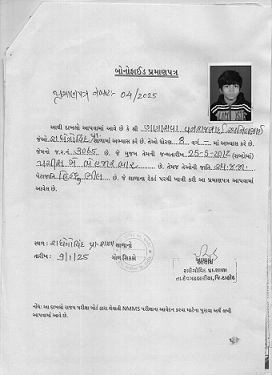 બોનોફાઈડ પ્રમાણપત્ર
પ્રમાણપત્ર નંબર:- 04/2025
આથી દાખલો આપવામાં આવે છે કે શ્રી
જેઓ શાળામાં અભ્યાસ કરે છે. તેઓ ધોરણ 8 વર્ગ - માં અભ્યાસ કરે છે.
જેમનો જ.ર.નં. 3065 છે. જે મુજબ તેમની જન્મતારીખ 25-5-2012 (શબ્દોમાં)
પચ્ચીસ મે બે હજાર બાર છે. તેમજ તેઓની જાતિ
પેટાજાતિ હિન્દુ ભીલ છે. જે શાળાના રેકર્ડ પરથી ખાત્રી કરી આ પ્રમાણપત્ર આપવામાં
આવેલ છે.
સ્થળ: પ્રા. શાળા
તારીખ: 9/1/25 ગોળ સિક્કો
આચાર્ય
તા.દેવગઢબારીયા, જિ.દાહોદ
નોંધ: આ દાખલો રાજ્ય પરીક્ષા બોર્ડ દ્વારા લેવાતી NMMS પરીક્ષાના આવેદન કરવા માટેના પુરાવા અર્થે
આપવામાં આવે છે.